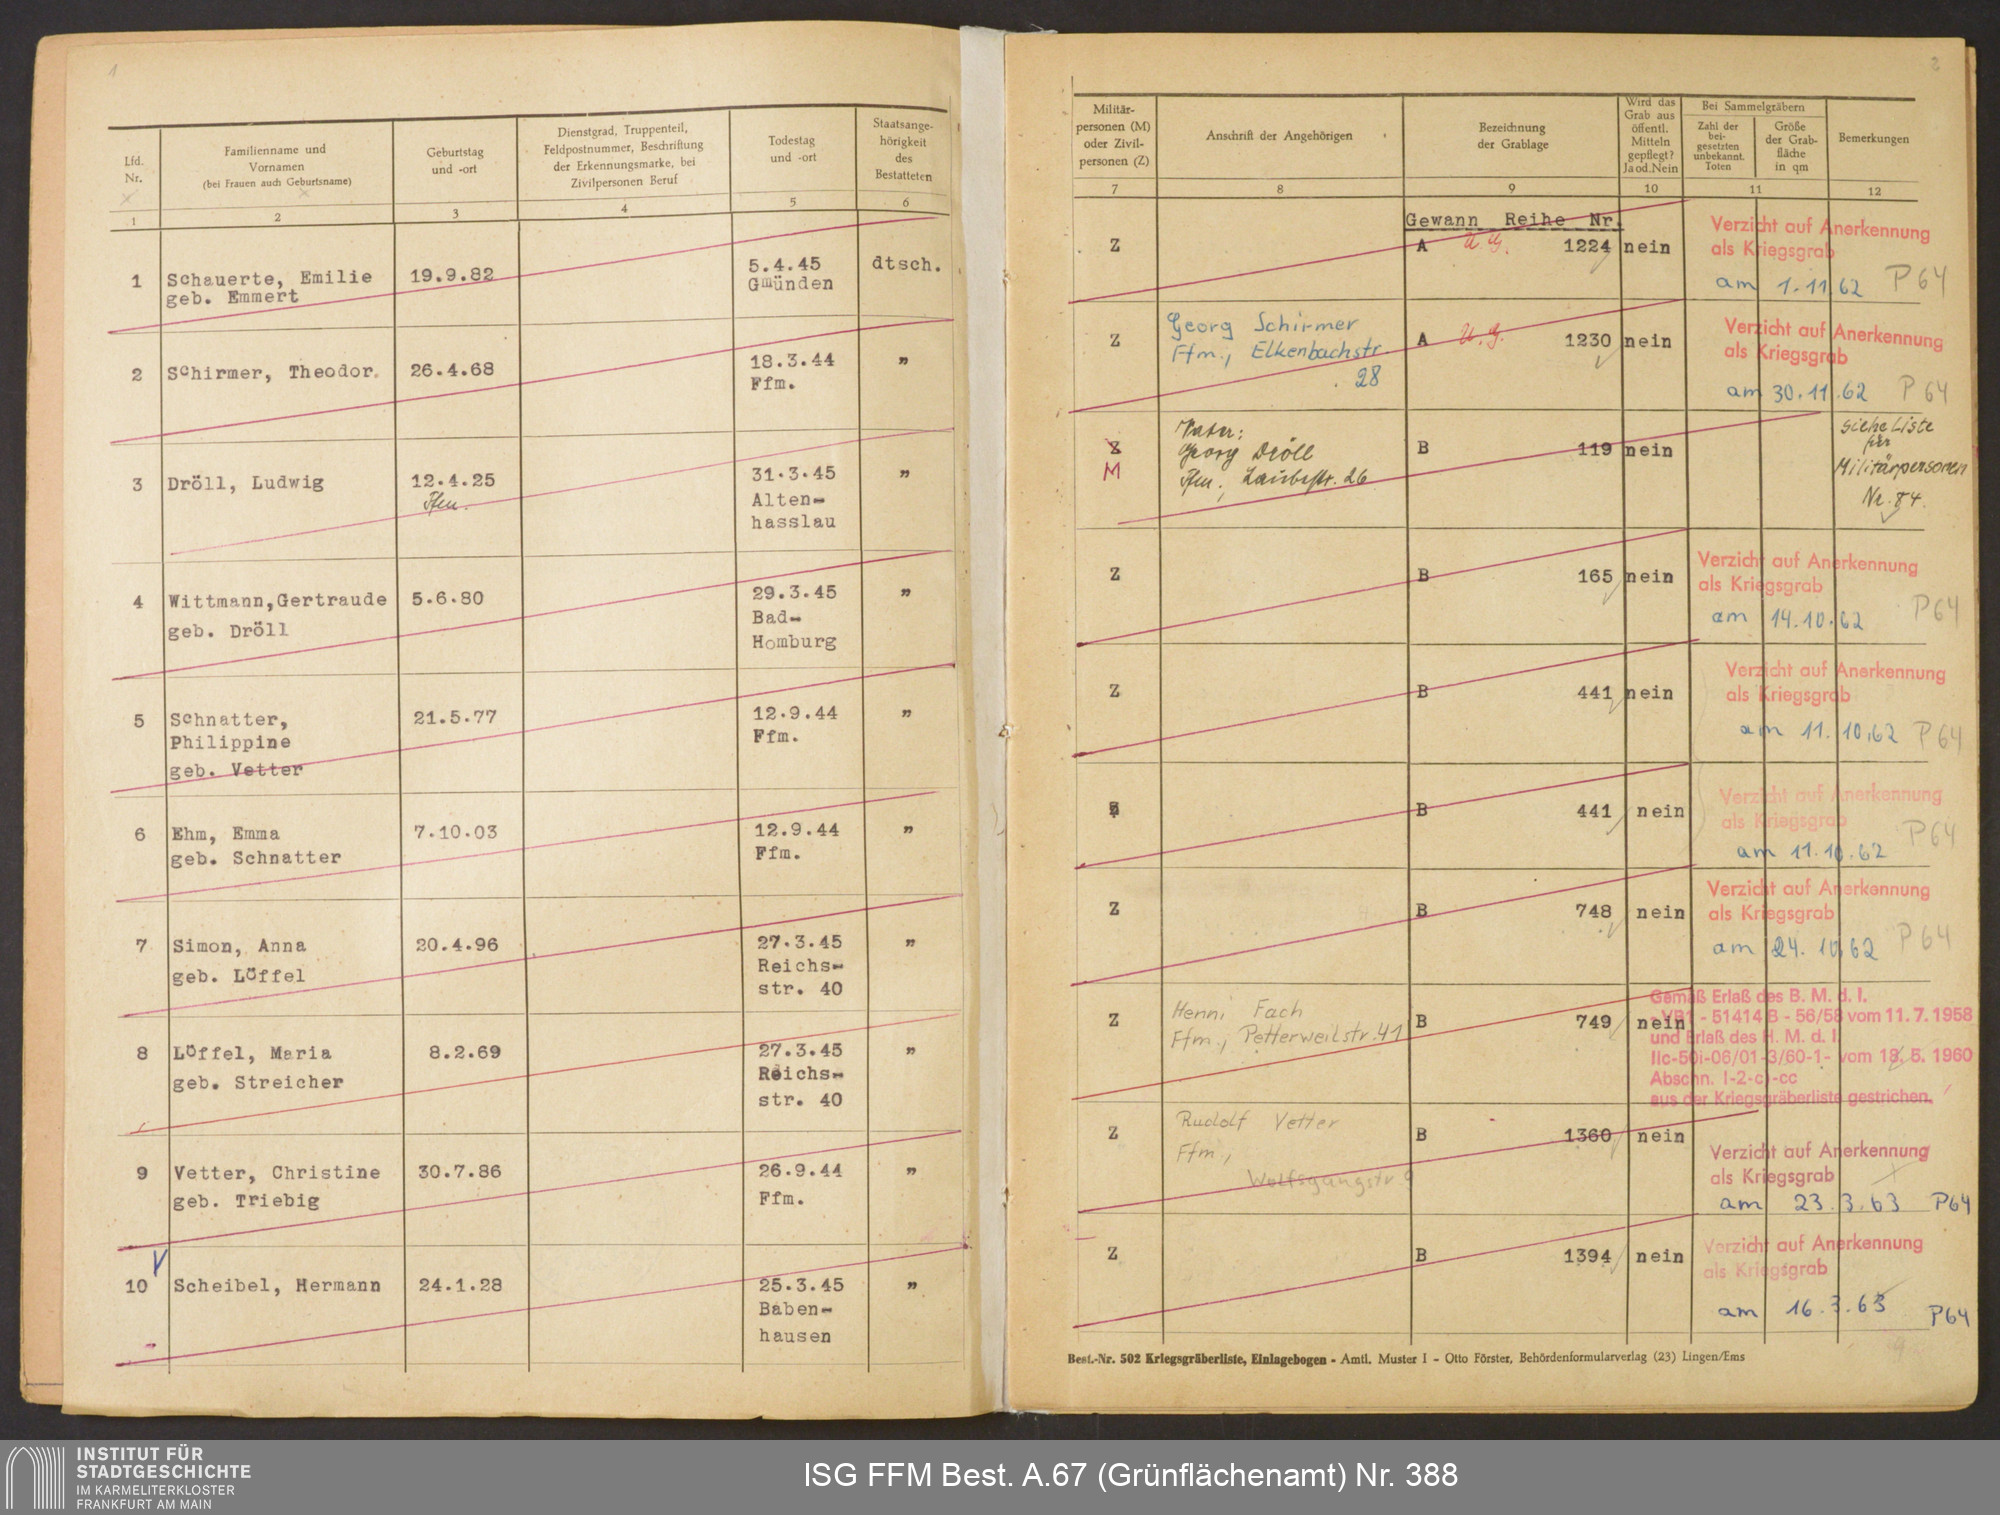 1
Lfd.
Nr.
Familienname und
Vornamen
(bei Frauen auch Geburtsname)
Geburtstag
und -ort
Dienstgrad, Truppenteil,
Feldpostnummer, Beschriftung
der Erkennungsmarke, bei
Zivilpersonen Beruf
Todestag
und -ort
Staatsange-
hörigkeit
des
Bestatteten
1 2 3 4 5 6
1 Schauerte, Emilie 19.9.82 5.4.45 dtsch.
geb. Emmert Gmünden
2 Schirmer, Theodor. 26.4.68 18.3.44 "
Ffm.
3 Dröll, Ludwig 12.4.25 31.3.45 "
Ffm. Alten-
hasslau
4 Wittmann,Gertraude 5.6.80 29.3.45 "
geb. Dröll Bad-
Homburg
5 Schnatter, 21.5.77 12.9.44 "
Philippine Ffm.
geb. Vetter
6 Ehm, Emma 7.10.03 12.9.44 "
geb. Schnatter Ffm.
7 Simon, Anna 20.4.96 27.3.45 "
geb. Löffel Reichs-
str. 40
8 Löffel, Maria 8.2.69 27.3.45 "
geb. Streicher Reichs-
str. 40
9 Vetter, Christine 30.7.86 26.9.44 "
geb. Triebig Ffm.
10 Scheibel, Hermann 24.1.28 25.3.45 "
Baben-
hausen
2
Militär-
personen (M)
oder Zivil-
personen (Z)
Anschrift der Angehörigen
Bezeichnung
der Grablage
Wird das
Grab aus
öffentl.
Mitteln
gepflegt?
Ja od. Nein
Bei Sammelgräbern
Zahl der
bei-
gesetzten
unbekannt.
Toten
Größe
der Grab-
fläche
in qm
Bemerkungen
7 8 9 10 11 12
Gewann Reihe Nr.
Z A U.G. 1224 nein
Verzicht auf Anerkennung
als Kriegsgrab
am 1.11.62 P64
Z Georg Schirmer A U.G. 1230 nein
Ffm., Elkenbachstr.
28
Verzicht auf Anerkennung
als Kriegsgrab
am 30.11.62 P64
Z
M
Vater:
Georg Dröll
Ffm., Laubestr. 26
B 119 nein
siehe Liste
für
Militärpersonen
Nr. 84.
Z B 165 nein
Verzicht auf Anerkennung
als Kriegsgrab
am 14.10.62 P64
Z B 441 nein
Verzicht auf Anerkennung
als Kriegsgrab
am 11.10.62 P64
B 441 nein
Verzicht auf Anerkennung
als Kriegsgrab
am 11.10.62 P64
Z B 748 nein
Verzicht auf Anerkennung
als Kriegsgrab
am 24.10.62 P64
Z Henni Fach B 749 nein
Ffm., Petterweilstr. 41
Gemäß Erlaß des B. M. d. I.
- VB1 - 51414 B - 56/58 vom 11. 7. 1958
und Erlaß des H. M. d. I.
IIc-50i-06/01-3/60-1- vom 13. 5. 1960
Abschn. I-2-c)-cc
aus der Kriegsgräberliste gestrichen.
Z Rudolf Vetter B 1360 nein
Ffm.,
Wolfsgangstr 9
Verzicht auf Anerkennung
als Kriegsgrab
am 23.3.63 P64
Z B 1394 nein
Verzicht auf Anerkennung
als Kriegsgrab
am 16.3.63 P64
Best.-Nr. 502 Kriegsgräberliste, Einlagebogen - Amtl. Muster I - Otto Förster, Behördenformularverlag (23) Lingen/Ems
INSTITUT FÜR
STADTGESCHICHTE
IM KARMELITERKLOSTER
FRANKFURT AM MAIN
ISG FFM Best. A.67 (Grünflächenamt) Nr. 388